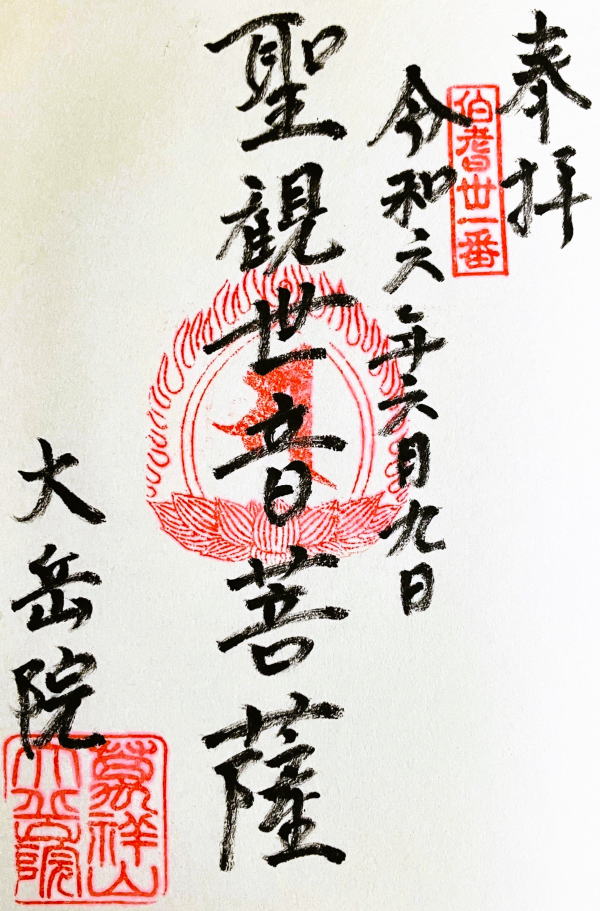 奉拝
伯耆丗一番
令和六年六月九日
聖観世音菩薩
大岳院
萬祥山
大岳院